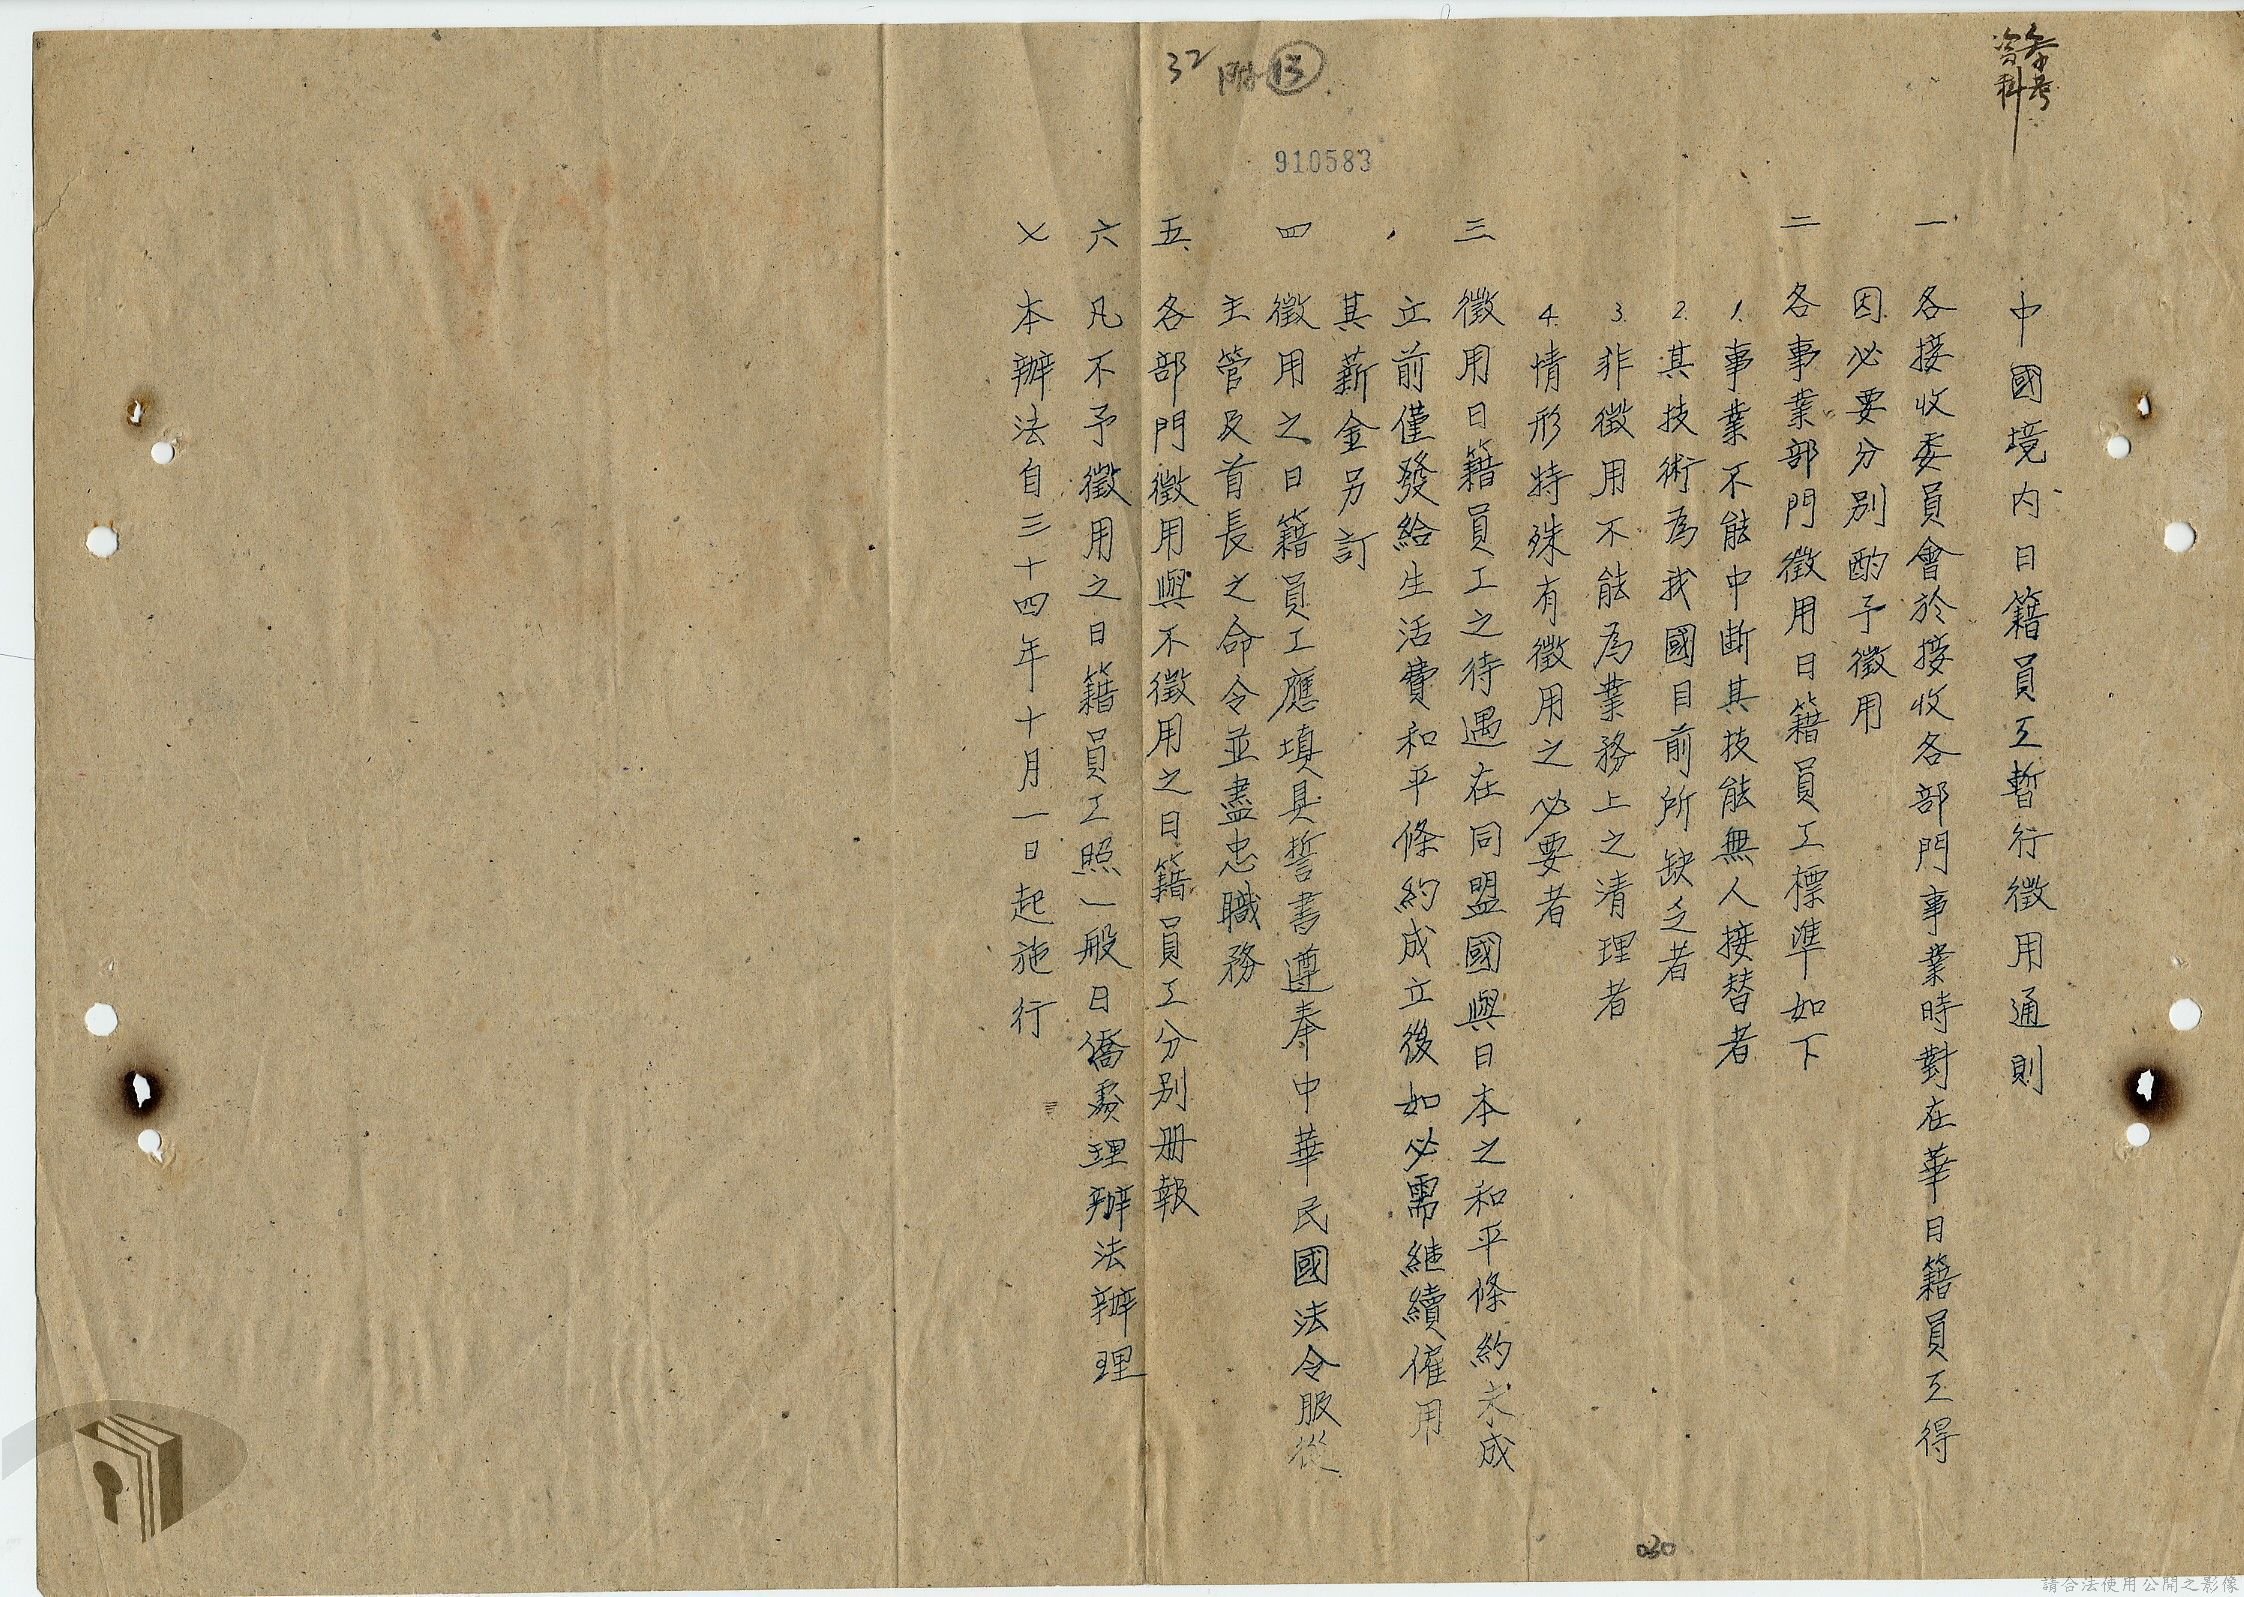 參考
資料
32 附 13
910583
中國境內日籍員工暫行徵用通則
一 各接收委員會於接收各部門事業時對在華日籍員工得
因必要分別酌予徵用
二 各事業部門徵用日籍員工標準如下
1. 事業不能中斷其技能無人接替者
2. 其技術為我國目前所缺乏者
3. 非徵用不能為業務上之清理者
4. 情形特殊有徵用之必要者
三 徵用日籍員工之待遇在同盟國與日本之和平條約未成
立前僅發給生活費和平條約成立後如必需繼續僱用
其薪金另訂
四 徵用之日籍員工應填具誓書遵奉中華民國法令服從
主管及首長之命令並盡忠職務
五 各部門徵用與不徵用之日籍員工分別冊報
六 凡不予徵用之日籍員工照一般日僑處理辦法辦理
七 本辦法自三十四年十月一日起施行
030
請合法使用公開之影像